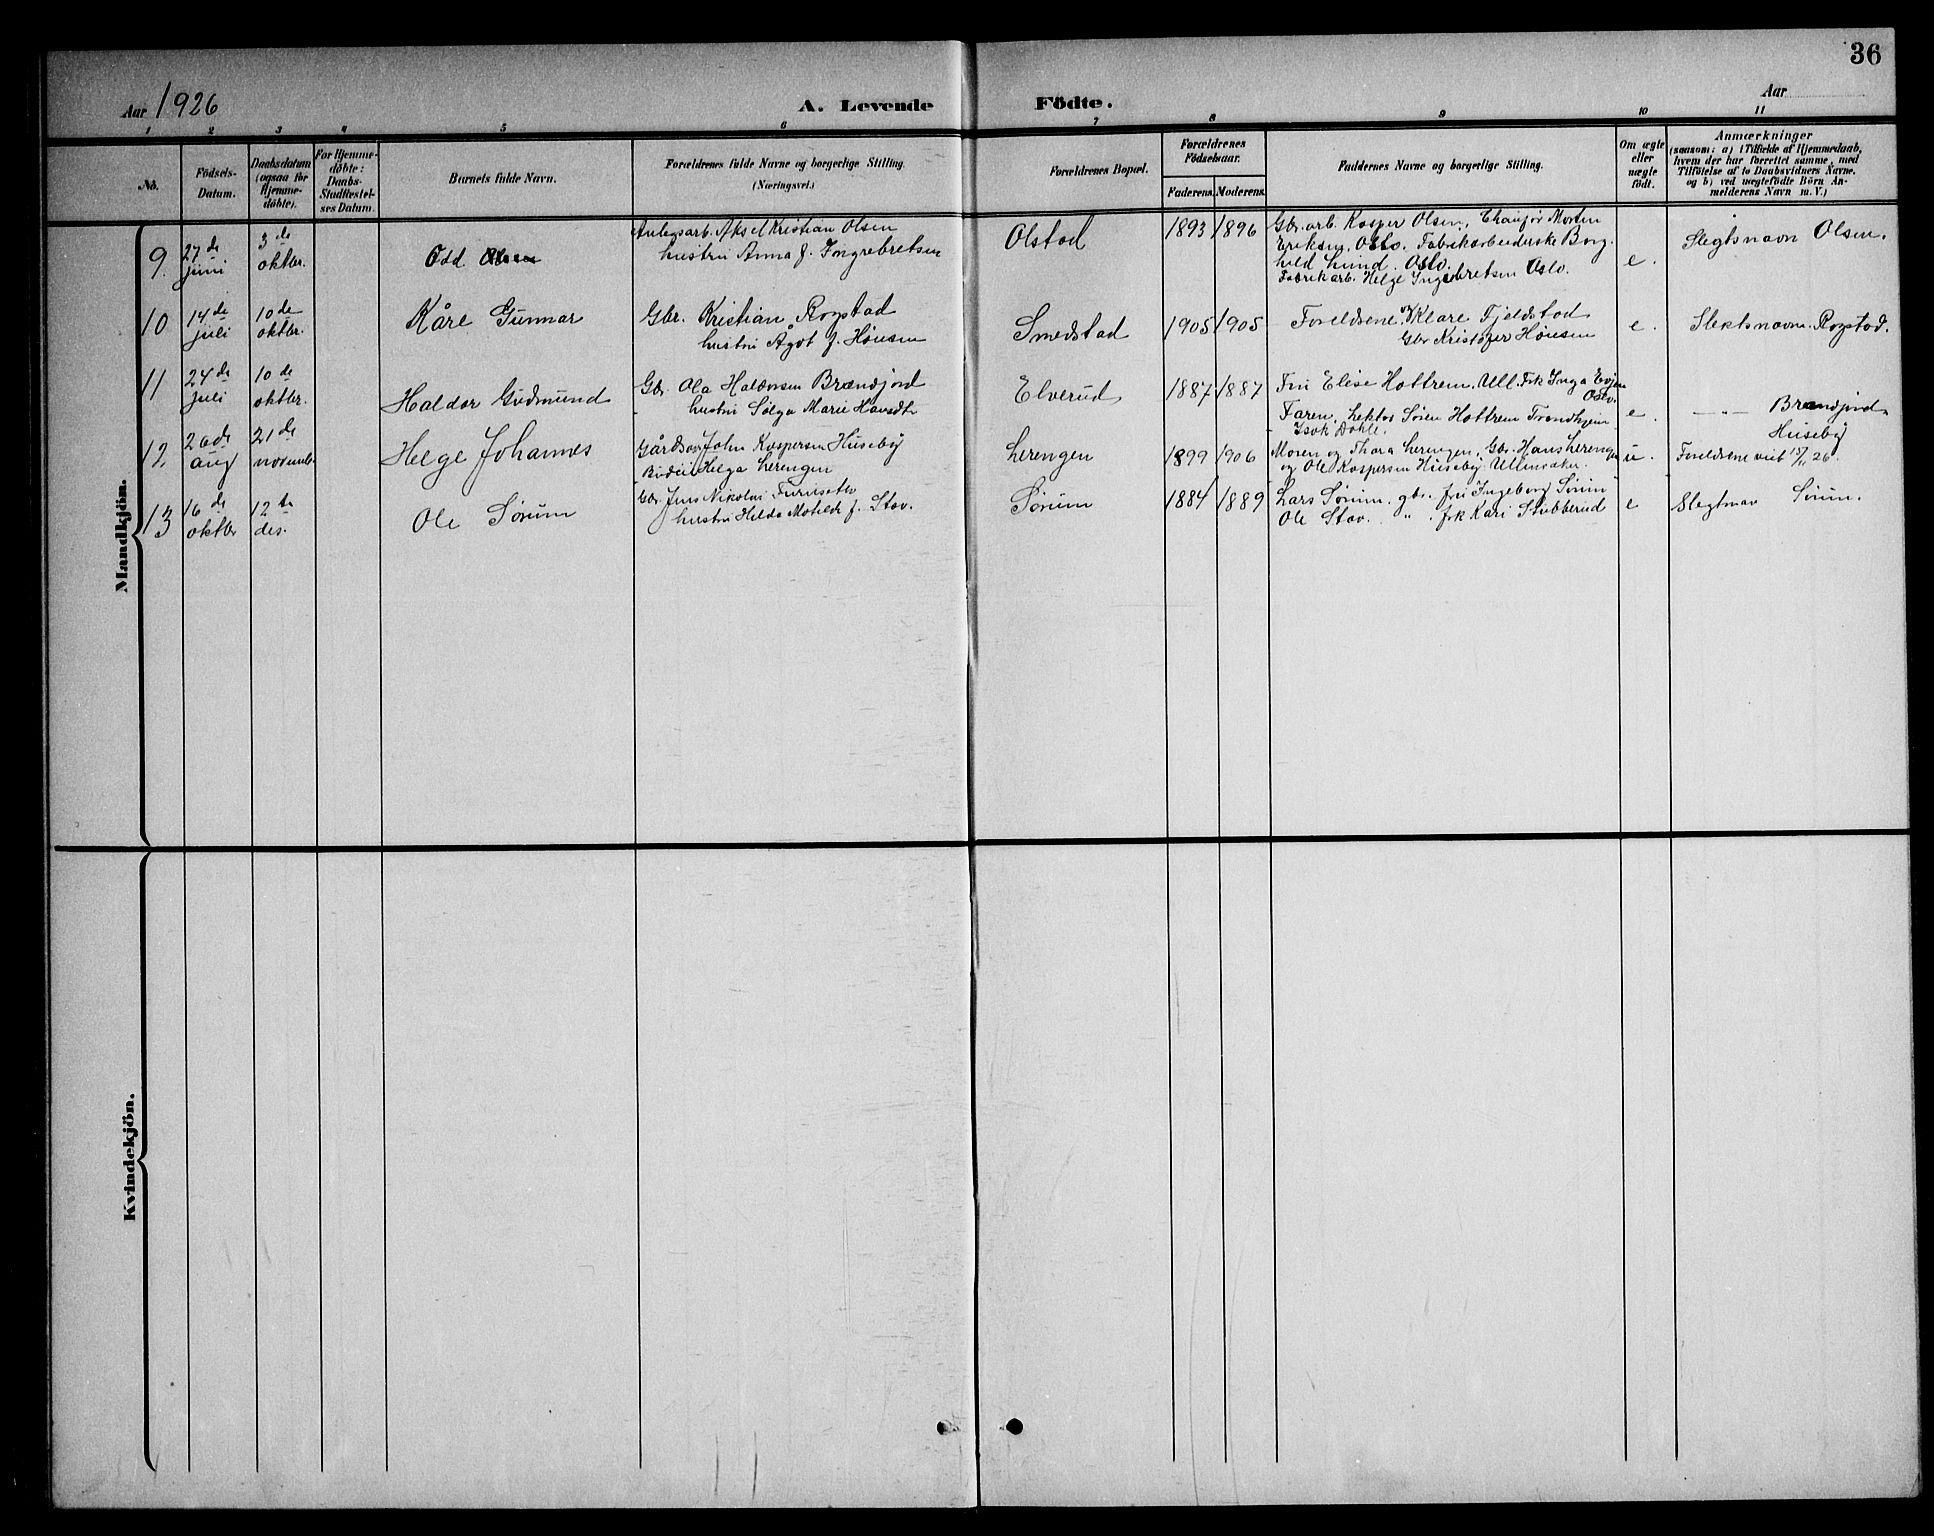 36
Aar 1926 A. Levende Födte. Aar
1 2 3 4 5 6 7 8 9 10 11
No.
Födsels-
Datum.
Daabsdatum
(ogsaa for
Hjemme-
döbte).
For Hjemme-
döbte:
Daabs-
Stadfæstel-
ses Datum.
Barnets fulde Navn.
Forældrenes fulde Navne og borgerlige Stilling.
(Næringsvei.)
Forældrenes Bopæl.
Forældrenes
Födselsaar.
Faderens. Moderens.
Faddernes Navne og borgerlige Stilling.
Om ægte
eller
uægte
født.
Anmærkninger
(saasom: a) i Tilfælde af Hjemmedaab,
hvem der har forrettet samme, med
Tilföielse af to Daabsvidners Navne.
og b) ved uægtefödte Börn An-
melderens Navn m. V.)
Mandkjön.
9. 27de juni
3de oktbr.
Odd
Anlegsarb. Aksel Kristian Olsen
hustru Anna f. Ingebretsen
Olstad
1893 1896
Gbr. arb. Kasper Olsen, Chauför Morten
Eriksen, Oslo. Fabrikarbeiderske Borg-
hild Lund. Oslo.
Fabrikarb. Helge Ingebretsen Oslo.
e.
Slegtsnavn Olsen.
10 14de juli
10de oktbr.
Kåre Gunnar
Gbr. Kristian Rogstad
hustru Ågot f. Hönsen
Smedstad
1905 1905
Foreldrene, Klare Fjeldstad
Gbr Kristofer Hönsen
e.
Slektsnavn Rogstad.
11 24de juli
10de oktbr.
Haldor Gudmund
Gbr. Ola Haldorsen Brændjord
hustru Solga Marie
Elverud
1887 1887
Fru Elise Hottrem, Ull. Frk Inga Evjen
Oslo.
Faren, Lektor Sören Hottrem Trondhjem
Isak Dahle.
e.
— " — Brændjord
12. 26de aug
21de novemb.
Helge Johannes
Gårdsarb John Kaspersen Huseby
Budeie Helga Lerengen
Lerengen
1899 1906
Moren og Thora Lerengen, Gbr. Hans Lerengen
og Ole Kaspersen Huseby, Ullensaker.
u.
Huseby
Foreldrene viet 13/11 26.
13 16de oktbr
12te des.
Ole Sørum
Gbr Jens Nikolai Furuseth
hustru Hilda Matilde f. Stav.
Sørum
1884 1889
Lars Sørum, gbr. fru Ingeborg Sørum
Ole Stav. " . frk Kari Stubberud
e
Slegtnav Sörum.
Kvindekjön.